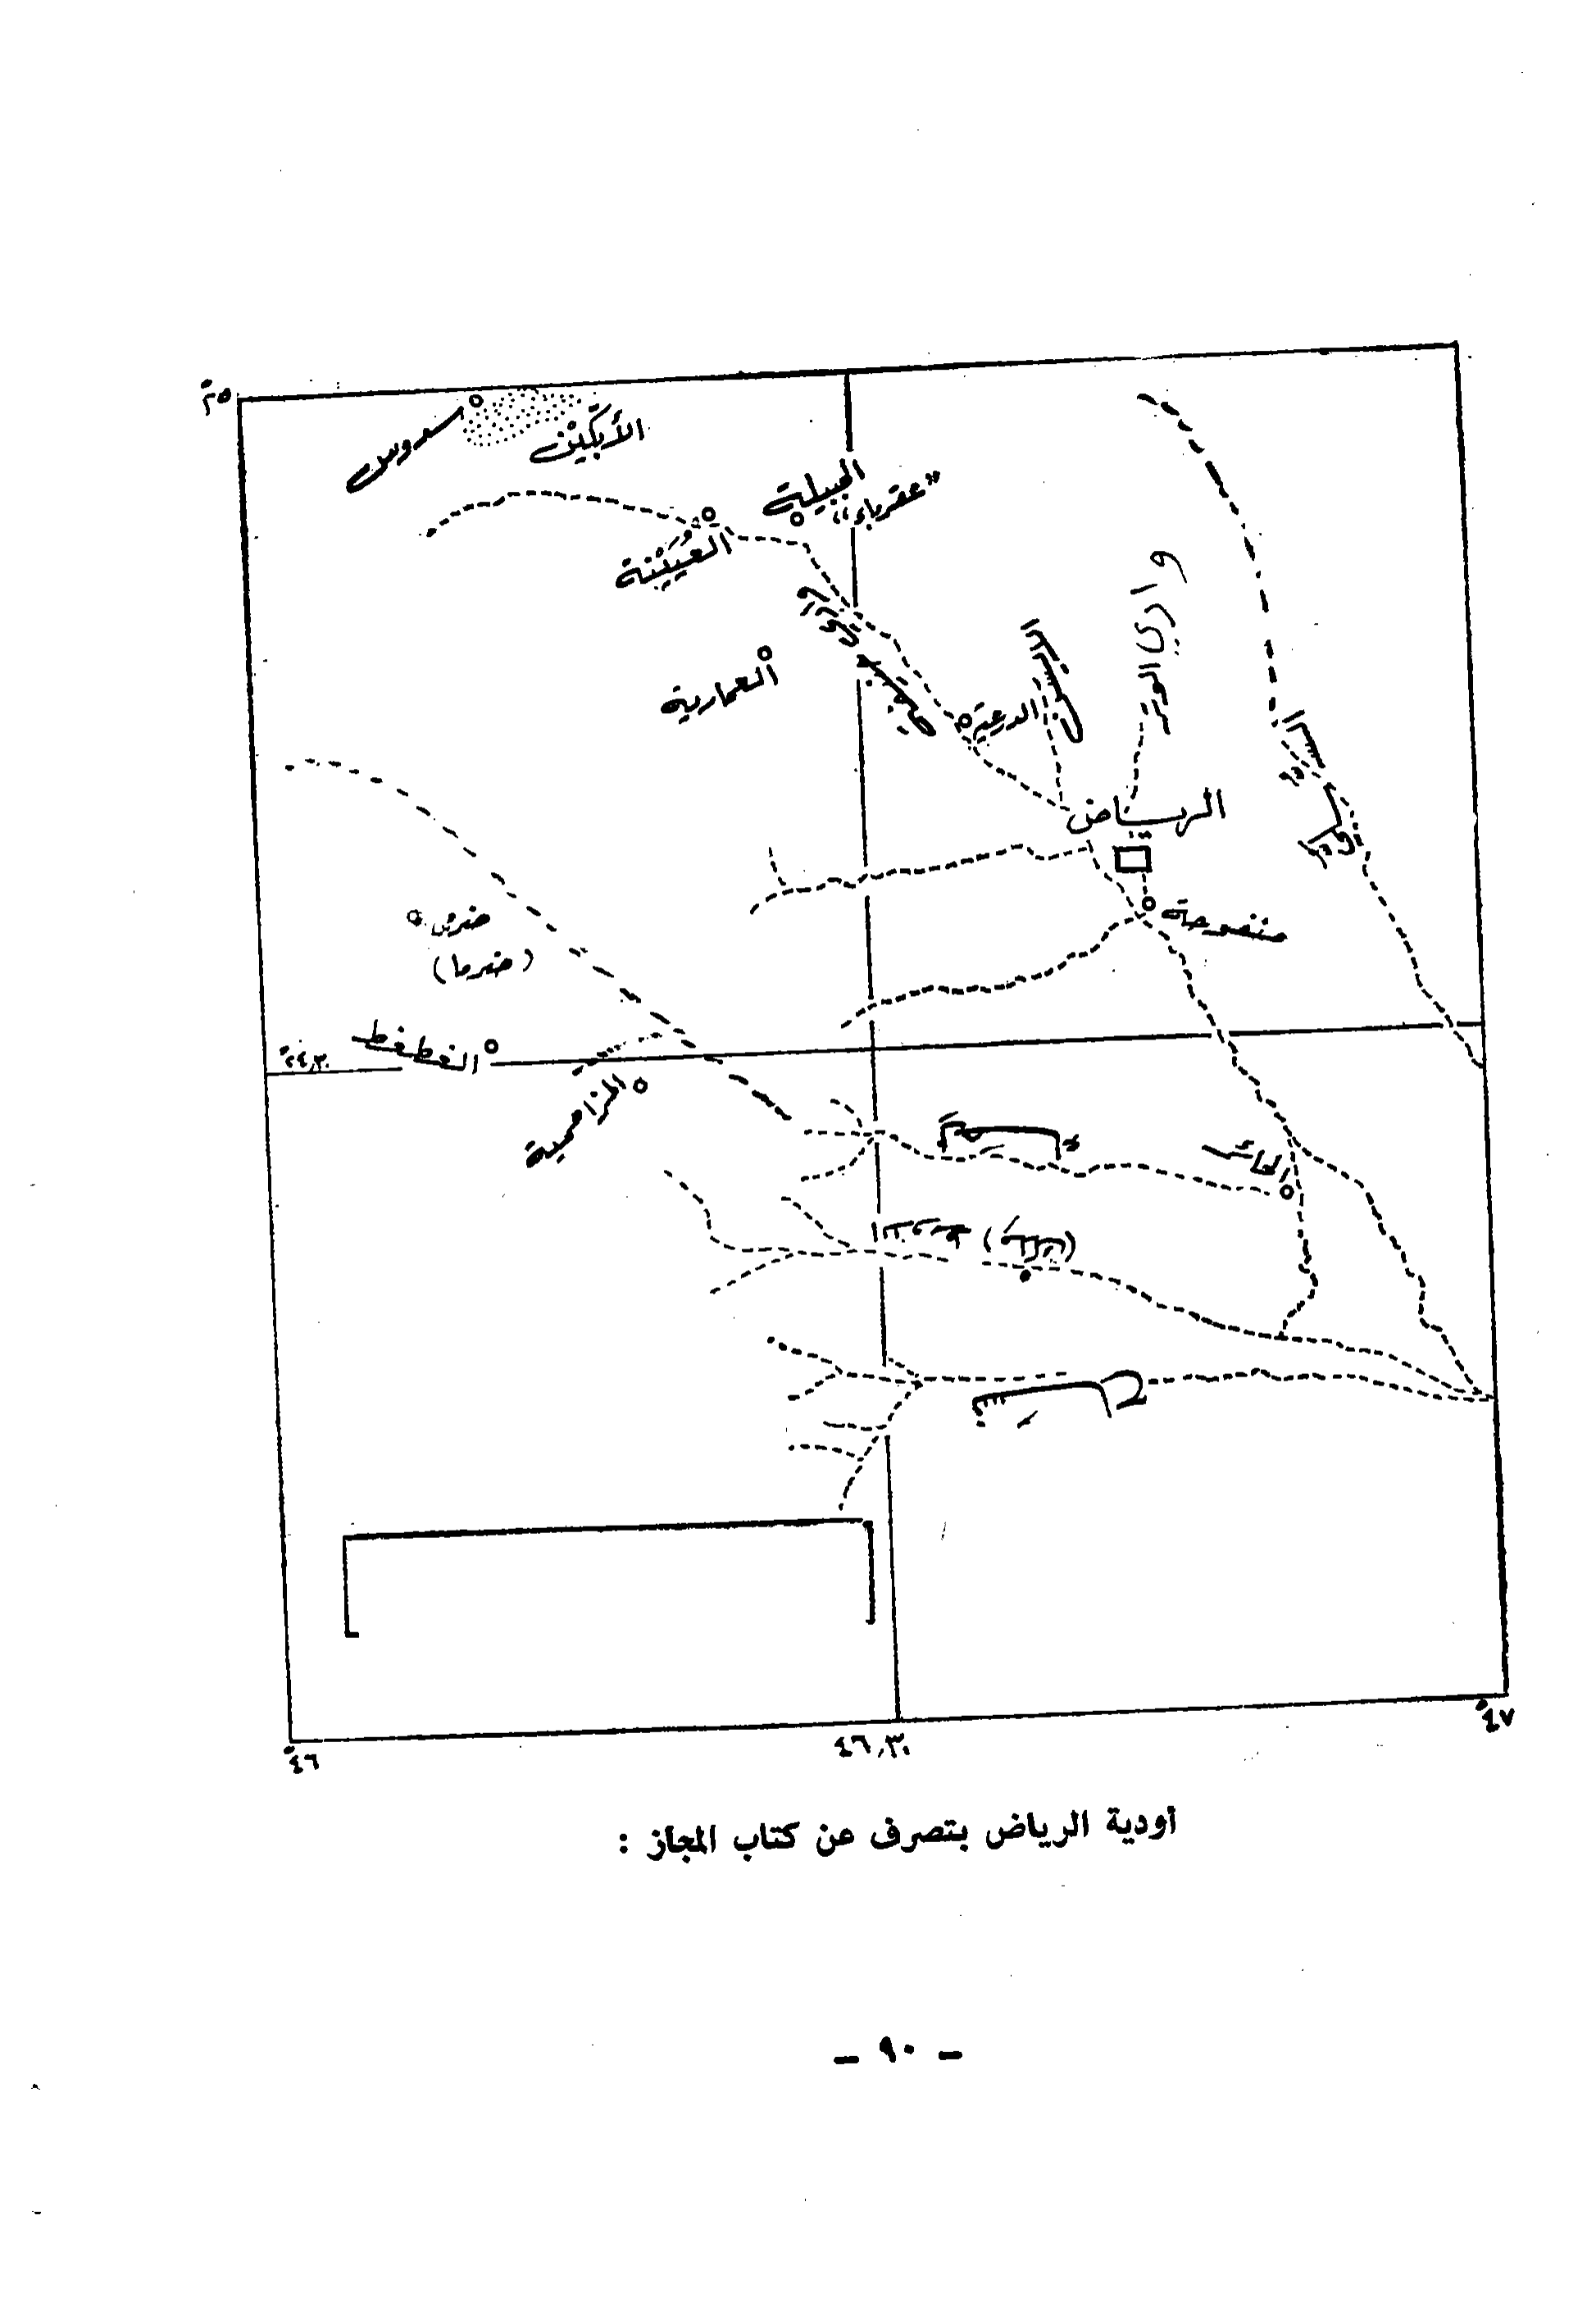 ٢٥°
سدوس
الأبكّين
الجبيلة
"عقرباء"
العُيَيْنة
وادي الوتر
العمارية
الدرعية
الرياض
منفوحة
ضرمى
(ضرما)
٢٤,٣٠°
الغطغط
المزاحمية
الحائر
٤٦°
٤٦,٣٠
٤٧°
أودية الرياض بتصرف عن كتاب المجاز :
– ٩٠ –